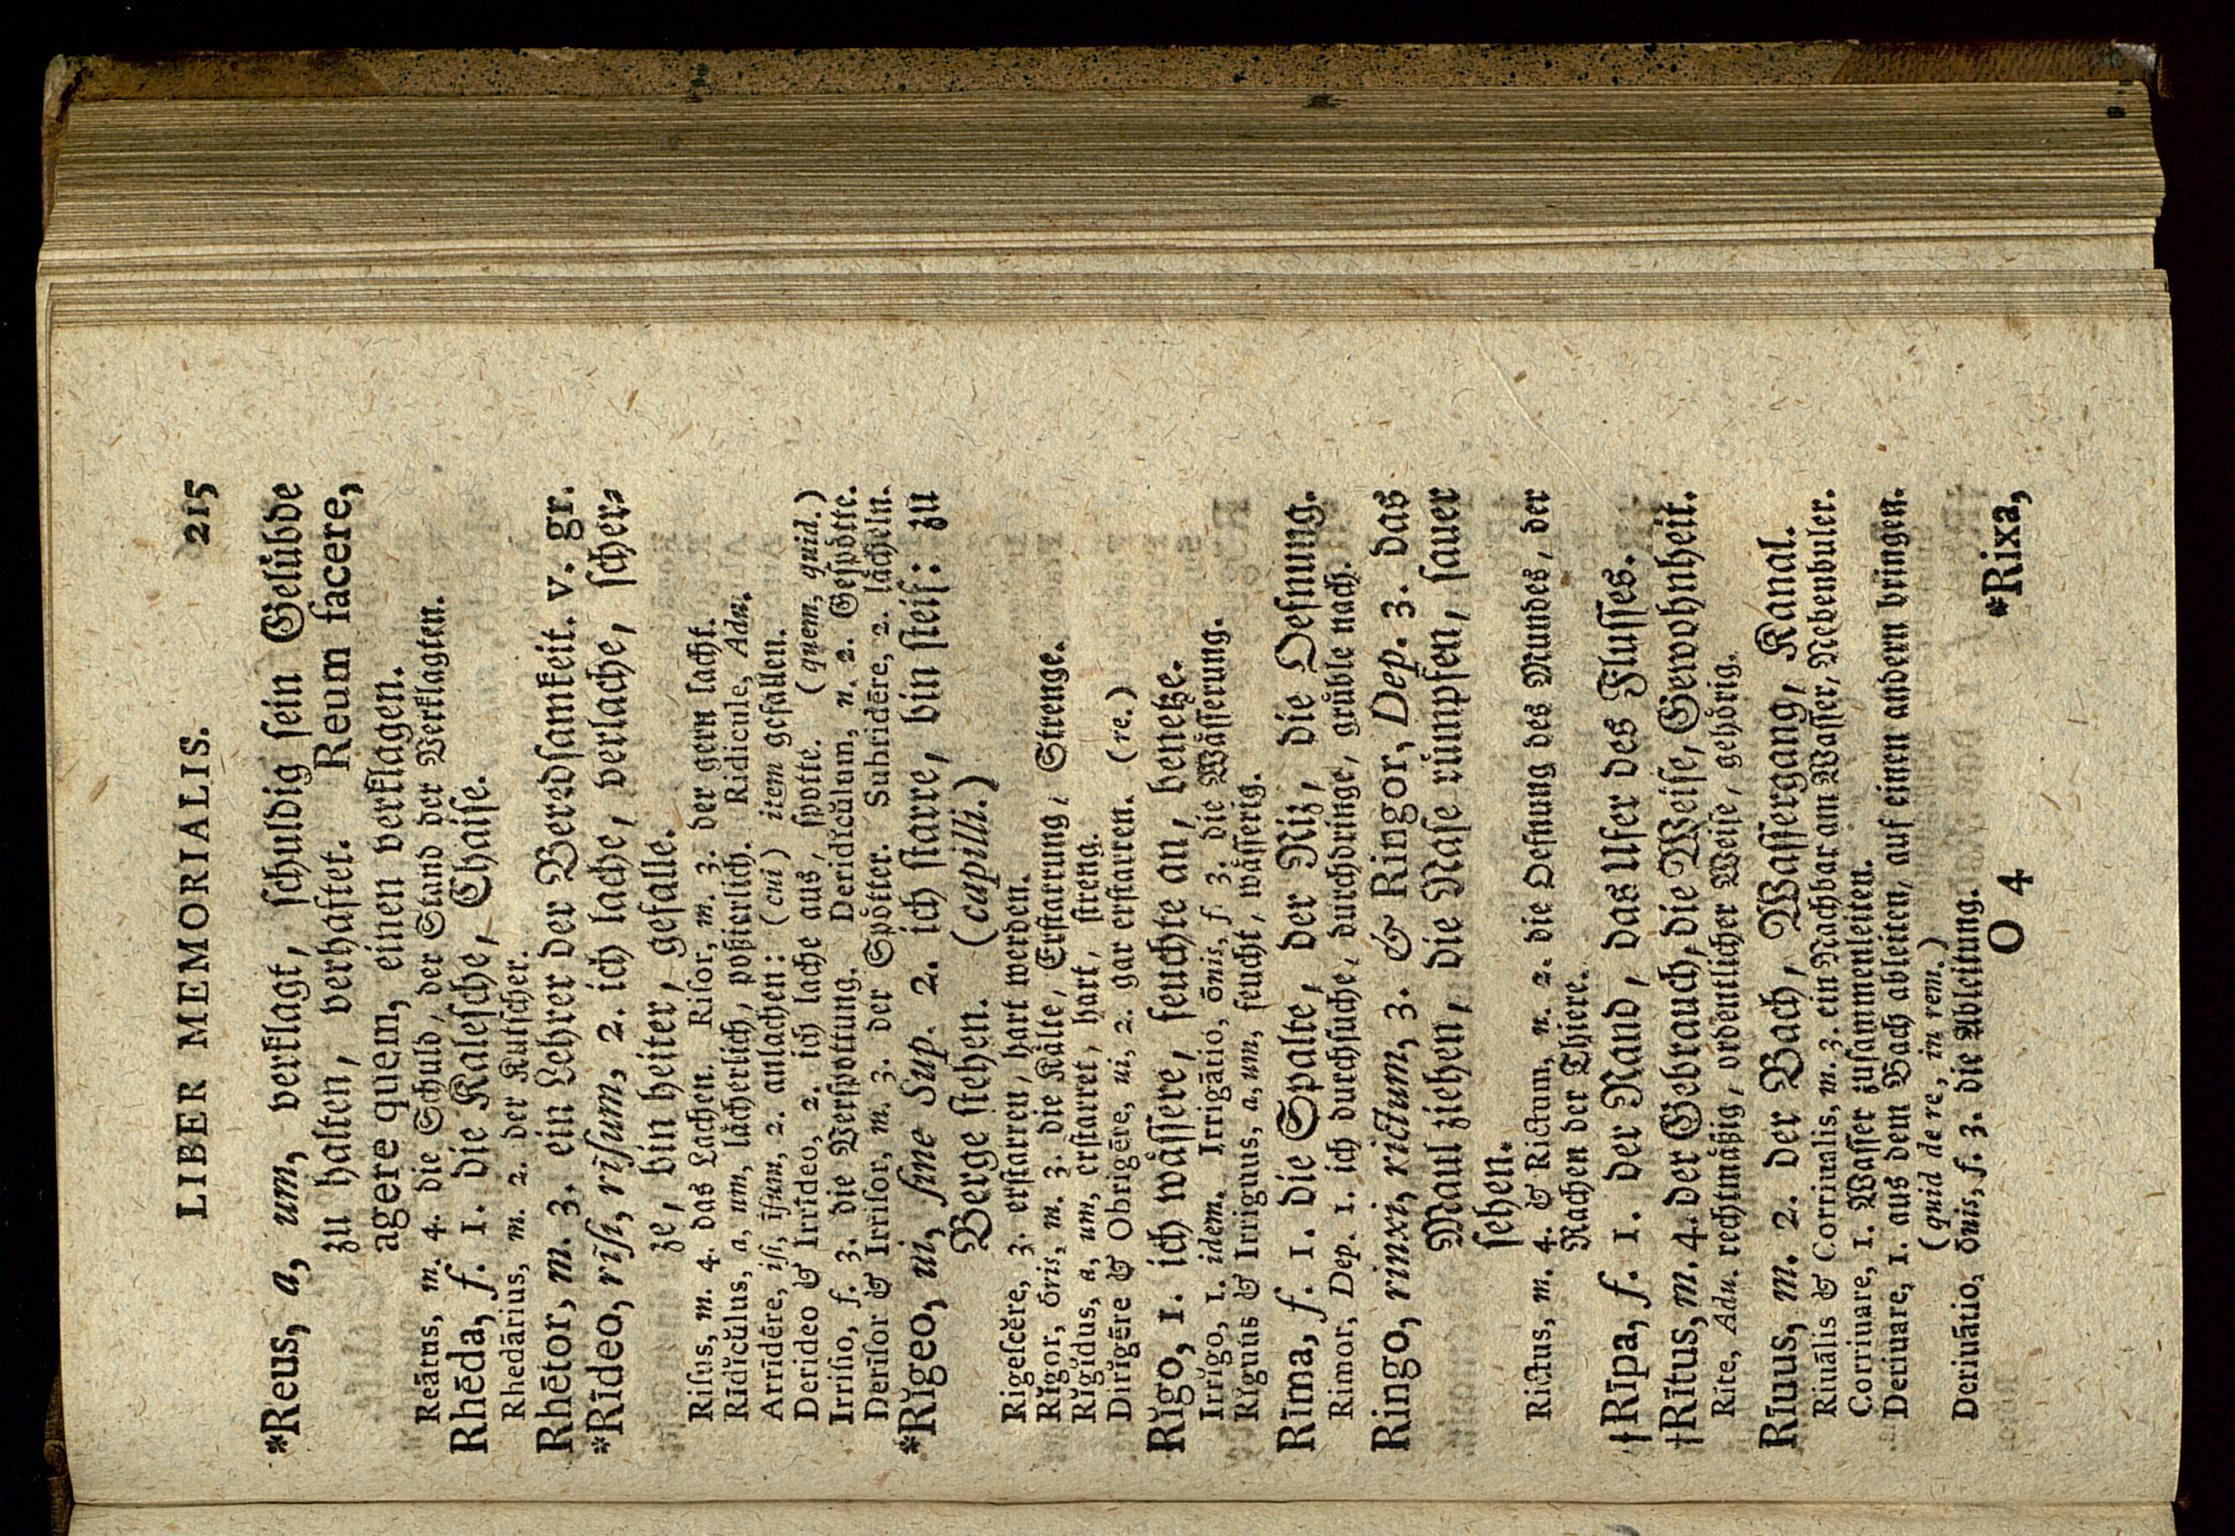 LIBER MEMORIALIS. 215
*Reus, a, um, verklagt, ſchuldig ſein Gelübde
zu halten, verhaftet. Reum facere,
agere quem, einen verklagen.
Reātus, m. 4. die Schuld, der Stand der Verklagten.
Rhēda, f. 1. die Kaleſche, Chaiſe.
Rhedārius, m. 2. der Kutſcher.
Rhētor, m. 3. ein Lehrer der Beredſamkeit. v. gr.
*Rīdeo, rīſi, rīſum, 2. ich lache, verlache, ſcher⸗
ze, bin heiter, gefalle.
Riſus, m. 4. das Lachen. Riſor, m. 3. der gern lacht.
Rīdĭcŭlus, a, um, lächerlich, poßierlich. Ridicule, Adu.
Arrīdēre, iſi, iſum, 2. anlachen: (cui) item gefallen.
Derideo & Irrīdeo, 2. ich lache aus, ſpotte. (quem, quid.)
Irriſio, f. 3. die Verſpottung. Deridĭcŭlum, n. 2. Geſpötte.
Derīſor & Irriſor, m. 3. der Spötter. Subridēre, 2. lächeln.
*Rĭgeo, ui, ſine Sup. 2. ich ſtarre, bin ſteif: zu
Berge ſtehen. (capilli.)
Rigeſcĕre, 3. erſtarren, hart werden.
Rĭgor, ōris, m. 3. die Kälte, Erſtarrung, Strenge.
Rĭgĭdus, a, um, erſtarret, hart, ſtreng.
Dirĭgēre & Obrigēre, ui, 2. gar erſtarren. (re.)
Rĭgo, 1. ich wäſſere, feuchte an, benetze.
Irrĭgo, 1. idem. Irrigātio, ōnis, f. 3. die Wäſſerung.
Rĭguus & Irriguus, a, um, feucht, wäſſerig.
Rīma, f. 1. die Spalte, der Riz, die Oefnung.
Rimor, Dep. 1. ich durchſuche, durchdringe, grüble nach.
Ringo, rinxi, rictum, 3. & Ringor, Dep. 3. das
Maul ziehen, die Naſe rümpfen, ſauer
ſehen.
Rictus, m. 4. & Rictum, n. 2. die Oefnung des Mundes, der
Rachen der Thiere.
†Rīpa, f. 1. der Rand, das Ufer des Fluſſes.
†Rītus, m. 4. der Gebrauch, die Weiſe, Gewohnheit.
Rite, Adu. rechtmäßig, ordentlicher Weiſe, gehörig.
Rīuus, m. 2. der Bach, Waſſergang, Kanal.
Riuālis & Corriualis, m. 3. ein Nachbar am Waſſer, Nebenbuler.
Corriuare, 1. Waſſer zuſammenleiten.
Deriuare, 1. aus dem Bach ableiten, auf einen andern bringen.
(quid de re, in rem.)
Deriuātio, ōnis, f. 3. die Ableitung.
O 4 *Rixa,